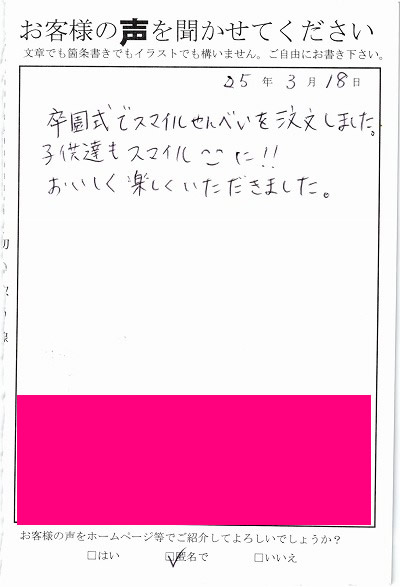 お客様の声を聞かせてください
文章でも箇条書きでもイラストでも構いません。ご自由にお書き下さい。
25年3月18日
卒園式でスマイルせんべいを注文しました。
子供達もスマイルここに!!
おいしく楽しくいただきました。
お客様の声をホームページ等でご紹介してよろしいでしょうか?
□はい ☑匿名で □いいえ